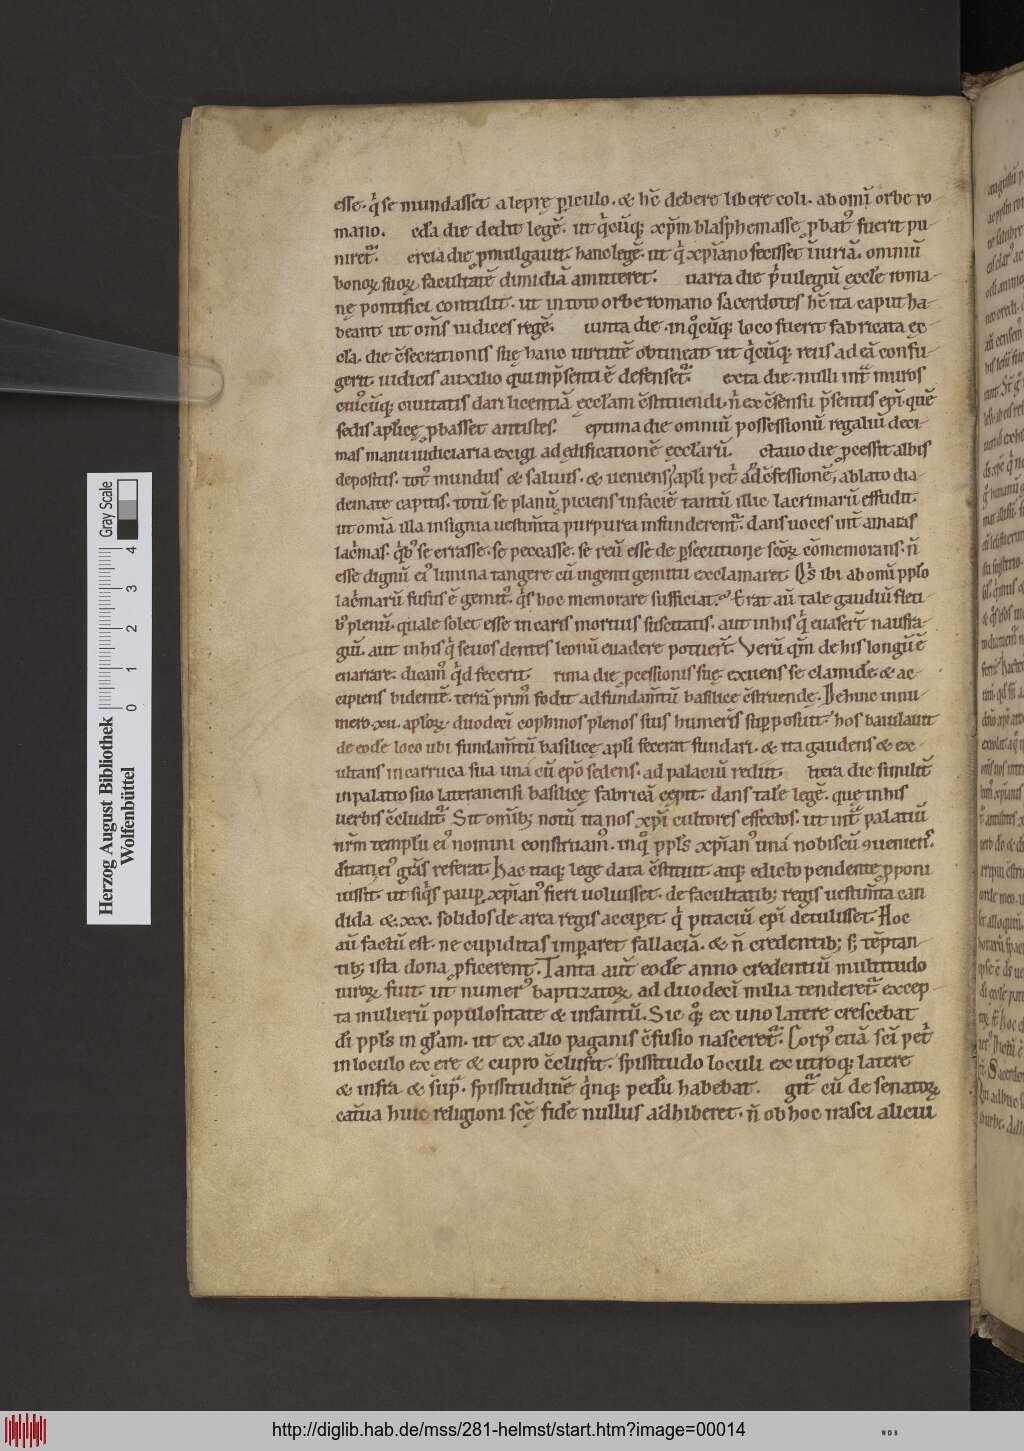 esse. q̇ se mundasset a leprę ꝑiculo. & hc̄ debere libere coli. ab om̄i orbe ro
mano. cd̄a die dedit legē. ut q̇cūq; xp̄m blasphemasse ꝓbat᷒ fuerit pu-
niret᷑. ercia die ꝓmulgauit. hanc legē. ut q̇ xp̄iano fecisset iniuriā. omniū
bonoꝝ suoꝝ facultatē dimidiā amitteret. uarta die ṗuilegiū ęccl̄e roma-
nę pontifici contulit. ut in toto orbe romano sacerdotes hc̄ ita caput ha-
beant. ut om̄s iudices regē. uinta die. in q̊cūq; loco fuerit fabricata ec-
cl̄a. die c̄secrationis suę hanc uirtutē obtineat ut q̇cūq; reus ad eā confu-
gerit. iudicis auxilio qui in p̄senti ē defenset᷑. exta die. nulli int᷑ muros
cui᷒cūq; ciuitatis dari licentiā ęccl̄am c̄stituendi. n̄ ex c̄sensu p̄sentis ep̄i. quē
sedis apl̄icę ꝓbasset antistes. eptima die omniū possessionū regaliū deci-
mas manu iudiciaria exigi ad ędificationē ęccl̄arū. ctauo die ꝓcessit albis
depositus. tot᷒ mundus & saluus. & ueniens apl̄i pet̄ ad c̄fessionē, ablato dia-
demate capitis. totū se planū ꝓiciens in faciē tantū illic lacrimarū effudit
ut om̄ia illa insignia uestim̄ta purpurea infunderent᷑. dans uoces int̄ amaras
lac̄mas. q̇b᷒ se errasse. se peccasse. se reū esse de ꝑsecutione sc̄oꝝ cōmemorans. n̄
esse dignū ei᷒ limina tangere cū ingenti gemitu exclamaret. Q̇s ibi ab om̄i pp̄lo
lac̄marū fusus ē gemit᷒. q̇s hoc memorare sufficiat? Erat aū tale gaudiū fleti-
b᷒ plenū. quale solet esse in caris mortuis suscitatis. aut in his q̇ euaserт̄ naufra-
giū. aut in his q̇ seuos dentes leonū euadere potuerт̄. Verū qm̄ de his longū ē
enarrare. dicam᷒ q̇d fecerit rima die ꝓcessionis suę. exuens se clamide. & ac-
cipiens bidentē. terrā prim᷒ fodit ad fundam̄tū basilicę c̄struendę. Dehinc in nu-
mero. xii. apl̄oꝝ. duodeci cophinos plenos suis humeris suꝑposuit. hos baiulauit
de eode loco ubi fundam̄tū basilicę apl̄i fecerat fundari. & ita gaudens & ex-
ultans in carruca sua una cū ep̄o sedens. ad palaciū rediit. ltera die similit̄
in palatio suo lateranensi basilicę fabricā cępit. dans tale legē. quę in his
uerbis c̄cludit᷑. Sit om̄ib; notū ita nos xp̄i cultores effectos. ut int᷑ palatiū
nr̄m templu ei᷒ nomini construam᷒. in q̊ pp̄ls xp̄ian᷒ una nobiscū ꝯuenienſ᷒.
d̄itati ei᷒ gr̄as referat. hac itaq; lege data c̄stituit atq; edicto pendente ꝓponi
iussit. ut siq̇s pauꝑ xp̄ian᷒ fieri uoluisset. de facultatib; regis uestim̄ta can
dida &. xxx. solidos de arca regis acciꝑet. q̇ pitaciū ep̄i detulisset. Hoc
aū factū est. ne cupiditas imꝑaret fallaciā. & n̄ credentib; s; tēptan-
tib; ista dona ꝓficerent. Tanta aūt eode anno credentiū multitudo
uiroꝝ fuit. ut numer᷒ baptizatoꝝ ad duodeci milia tenderet᷑ excep-
ta mulierū populositate & infantū. Sic q̊ꝫ ex uno latere crescebat
d̄i pp̄ls in gl̄am. ut ex alio paganis c̄fusio nasceret᷑. Corp᷒ etiā sc̄i pet̄
in loculo ex ere & cupro c̄clusit. spissitudo loculi ex utroq; latere
& infra & sup̄. spissitudinē q̇nq; pedū habebat. git᷑ cū de senatoꝝ
cat̄ua huic religioni sc̄ę fide nullus adhiberet. n̄ ob hoc irasci alicui
Herzog August Bibliothek
Wolfenbüttel
0 1 2 3 4
Gray Scale
http://diglib.hab.de/mss/281-helmst/start.htm?image=00014